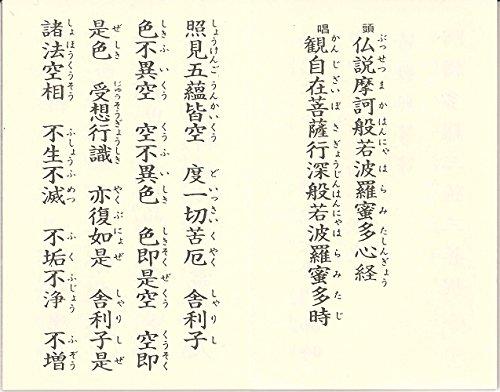 頭
ぶっせつ ま か はんにゃ は ら み た しんぎょう
仏説摩訶般若波羅蜜多心経
唱
かん じ ざい ぼ さ ぎょうじんはんにゃ は ら み た じ
観自在菩薩行深般若波羅蜜多時
しょうけんご うんかいくう ど いっさい く やく しゃ り し
照見五蘊皆空 度一切苦厄 舎利子
しき ふ い くう くう ふ い しき しきそく ぜ くう くうそく
色不異空 空不異色 色即是空 空即
ぜ しき じゅそうぎょうしき やく ぶ にょ ぜ しゃ り し ぜ
是色 受想行識 亦復如是 舎利子是
しょほうくうそう ふしょう ふ めつ ふ く ふじょう ふ ぞう
諸法空相 不生不滅 不垢不浄 不増